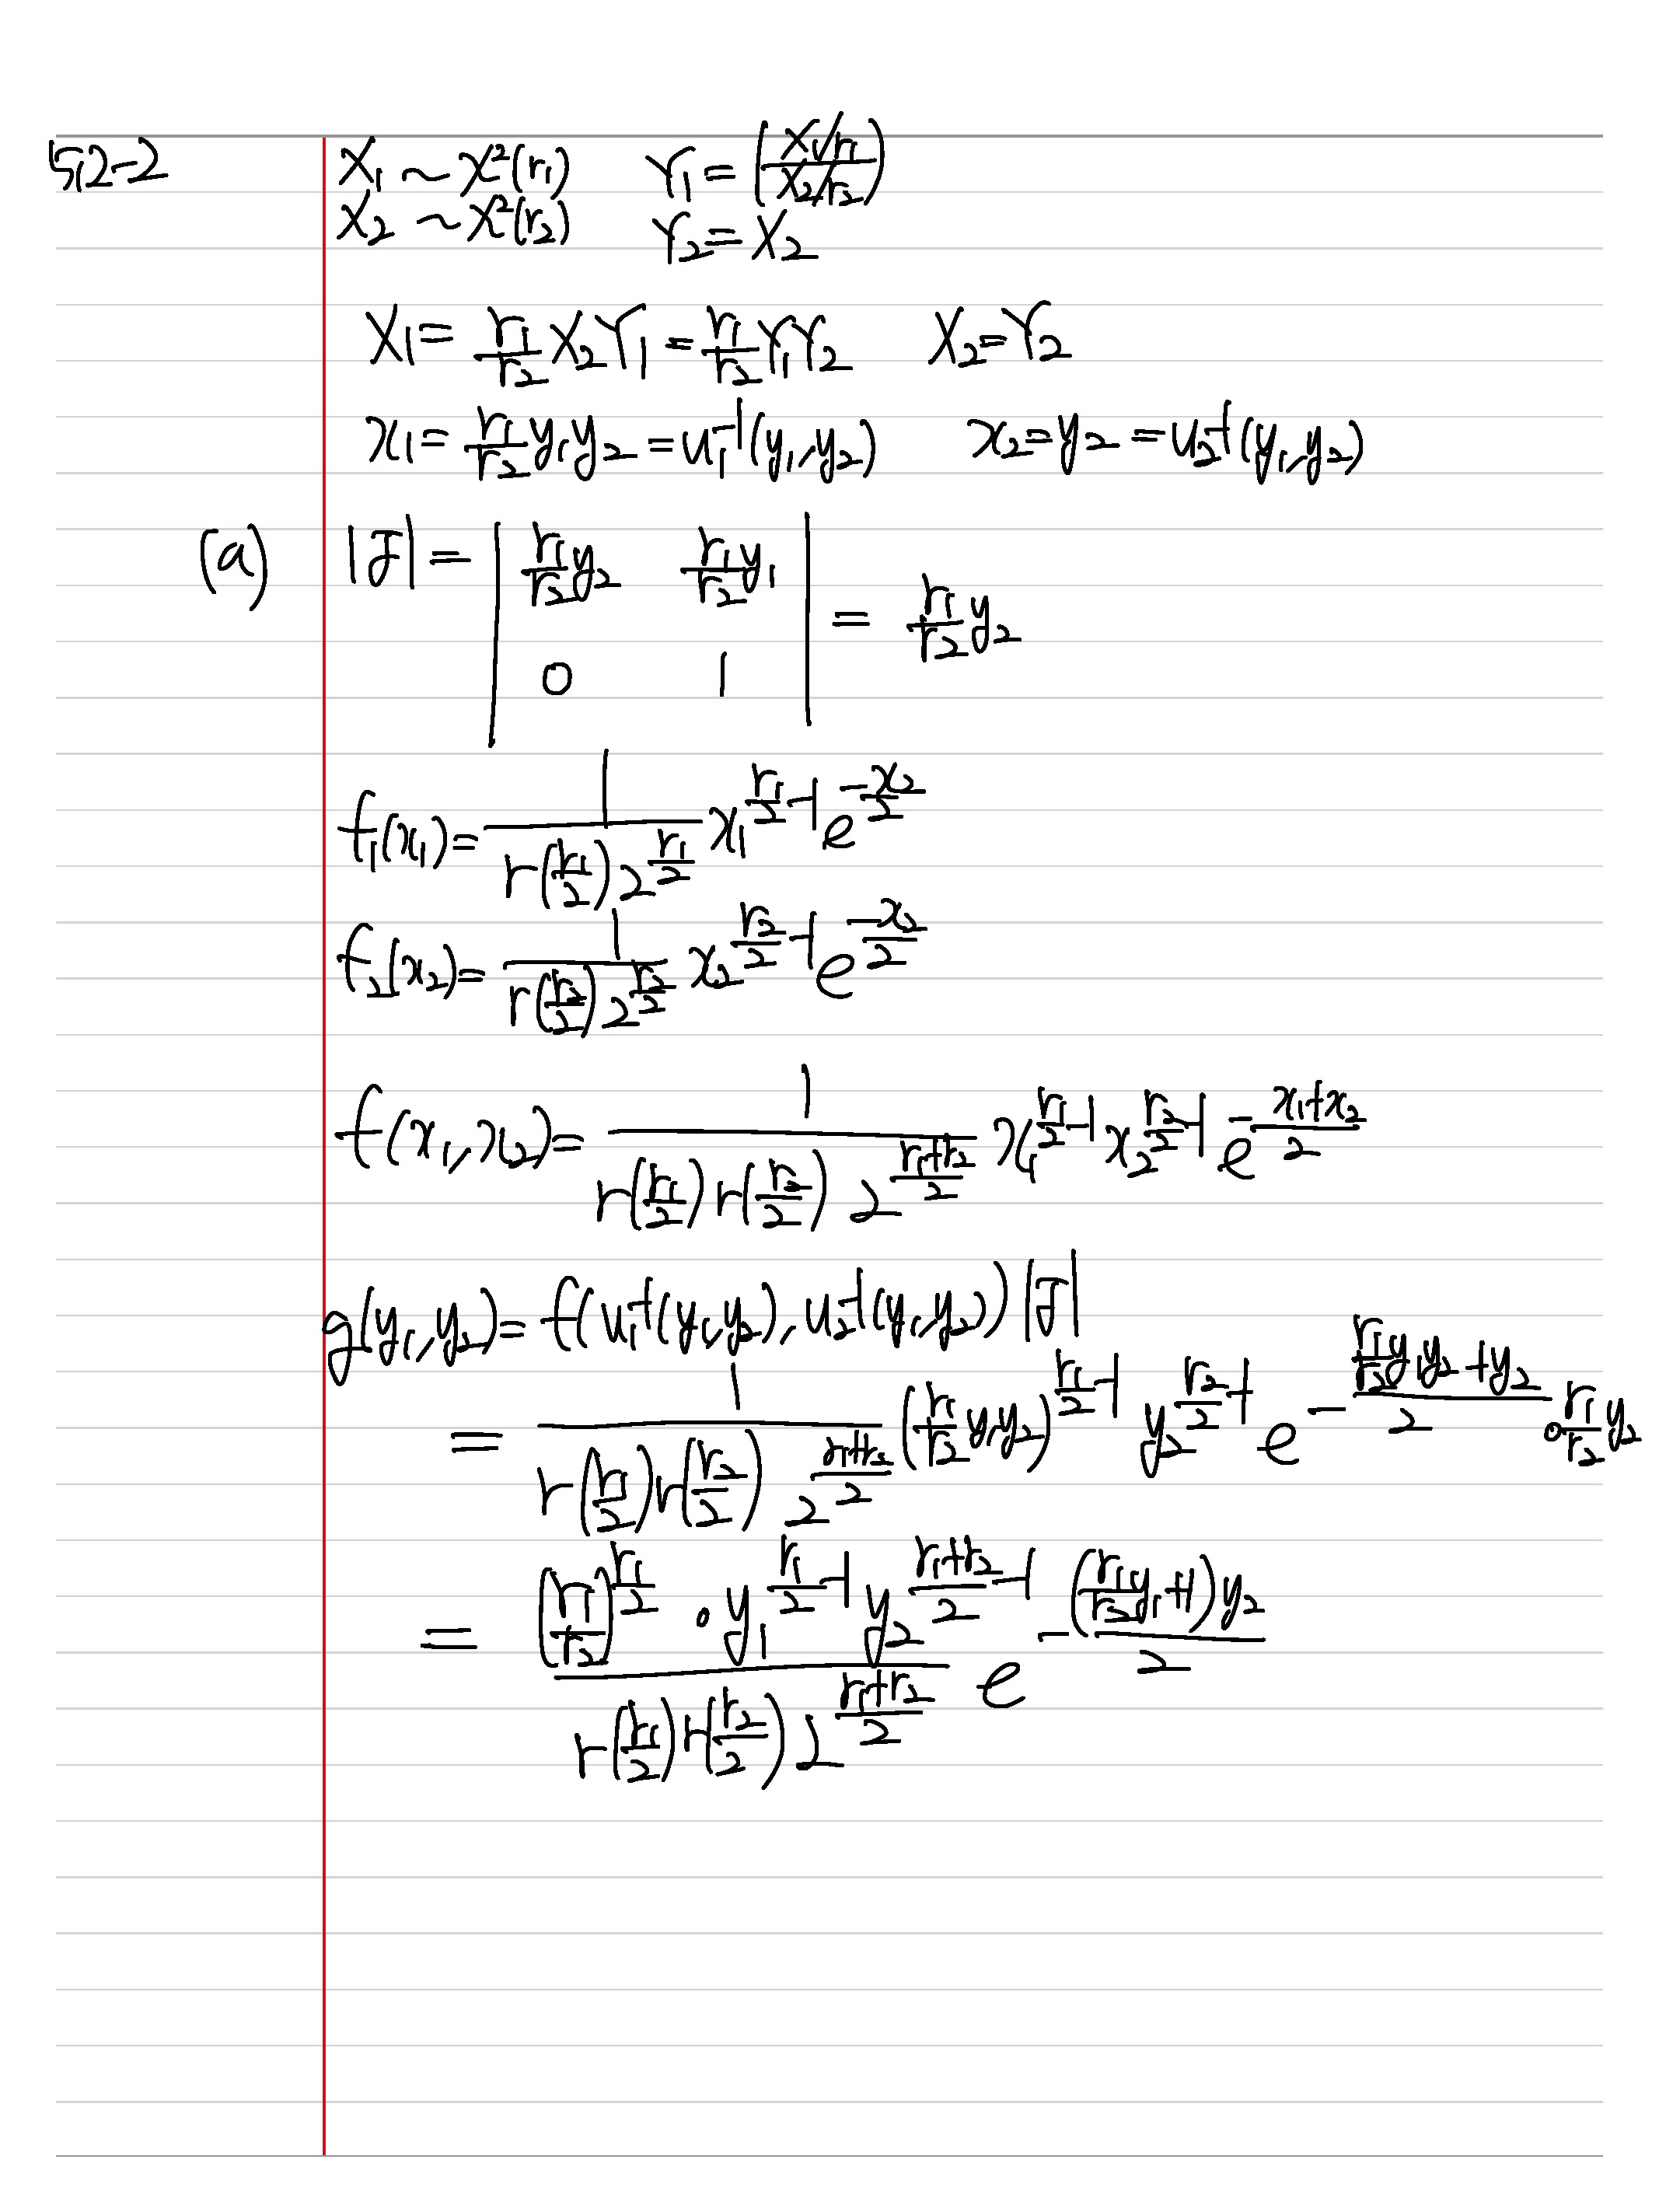 5.2-2 X₁ ~ χ²(r₁) Y₁ = ((X₁/r₁)/(X₂/r₂))
X₂ ~ χ²(r₂) Y₂ = X₂
X₁ = (r₁/r₂)X₂Y₁ = (r₁/r₂)Y₁Y₂ X₂ = Y₂
x₁ = (r₁/r₂)y₁y₂ = u₁⁻¹(y₁,y₂) x₂ = y₂ = u₂⁻¹(y₁,y₂)
(a) |J| = | (r₁/r₂)y₂ (r₁/r₂)y₁ ; 0 1 | = (r₁/r₂)y₂
f₁(x₁) = 1/(Γ(r₁/2) 2^(r₁/2)) x₁^(r₁/2 -1) e^(-x₂/2)
f₂(x₂) = 1/(Γ(r₂/2) 2^(r₂/2)) x₂^(r₂/2 -1) e^(-x₂/2)
f(x₁,x₂) = 1/(Γ(r₁/2)Γ(r₂/2) 2^((r₁+r₂)/2)) x₁^(r₁/2 -1) x₂^(r₂/2 -1) e^(-(x₁+x₂)/2)
g(y₁,y₂) = f(u₁⁻¹(y₁,y₂), u₂⁻¹(y₁,y₂)) |J|
= 1/(Γ(r₁/2)Γ(r₂/2) 2^((r₁+r₂)/2)) ((r₁/r₂)y₁y₂)^(r₁/2 -1) y₂^(r₂/2 -1) e^(-((r₁/r₂)y₁y₂+y₂)/2) · (r₁/r₂)y₂
= ((r₁/r₂)^(r₁/2) · y₁^(r₁/2 -1) y₂^((r₁+r₂)/2 -1))/(Γ(r₁/2)Γ(r₂/2) 2^((r₁+r₂)/2)) e^(-((r₁/r₂)y₁+1)y₂/2)